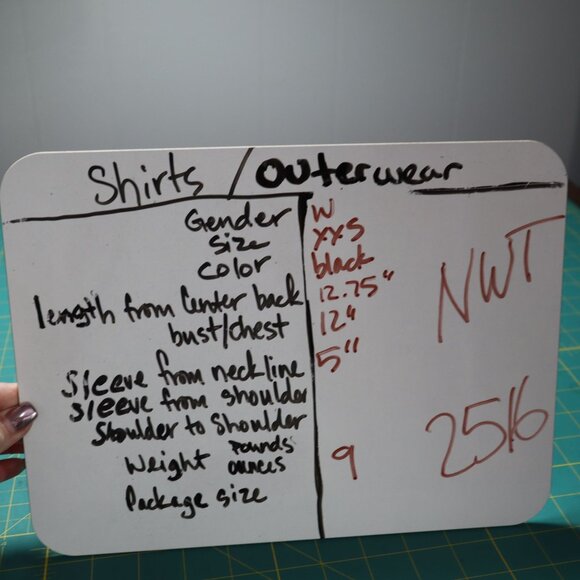 Shirts / Outerwear
Gender W
size XXS
color black
length from Center back 12.75"
bust/chest 12"
Sleeve from neckline 5"
Sleeve from shoulder
Shoulder to Shoulder
Weight Pounds
ounces 9
Package size
NWT
2516